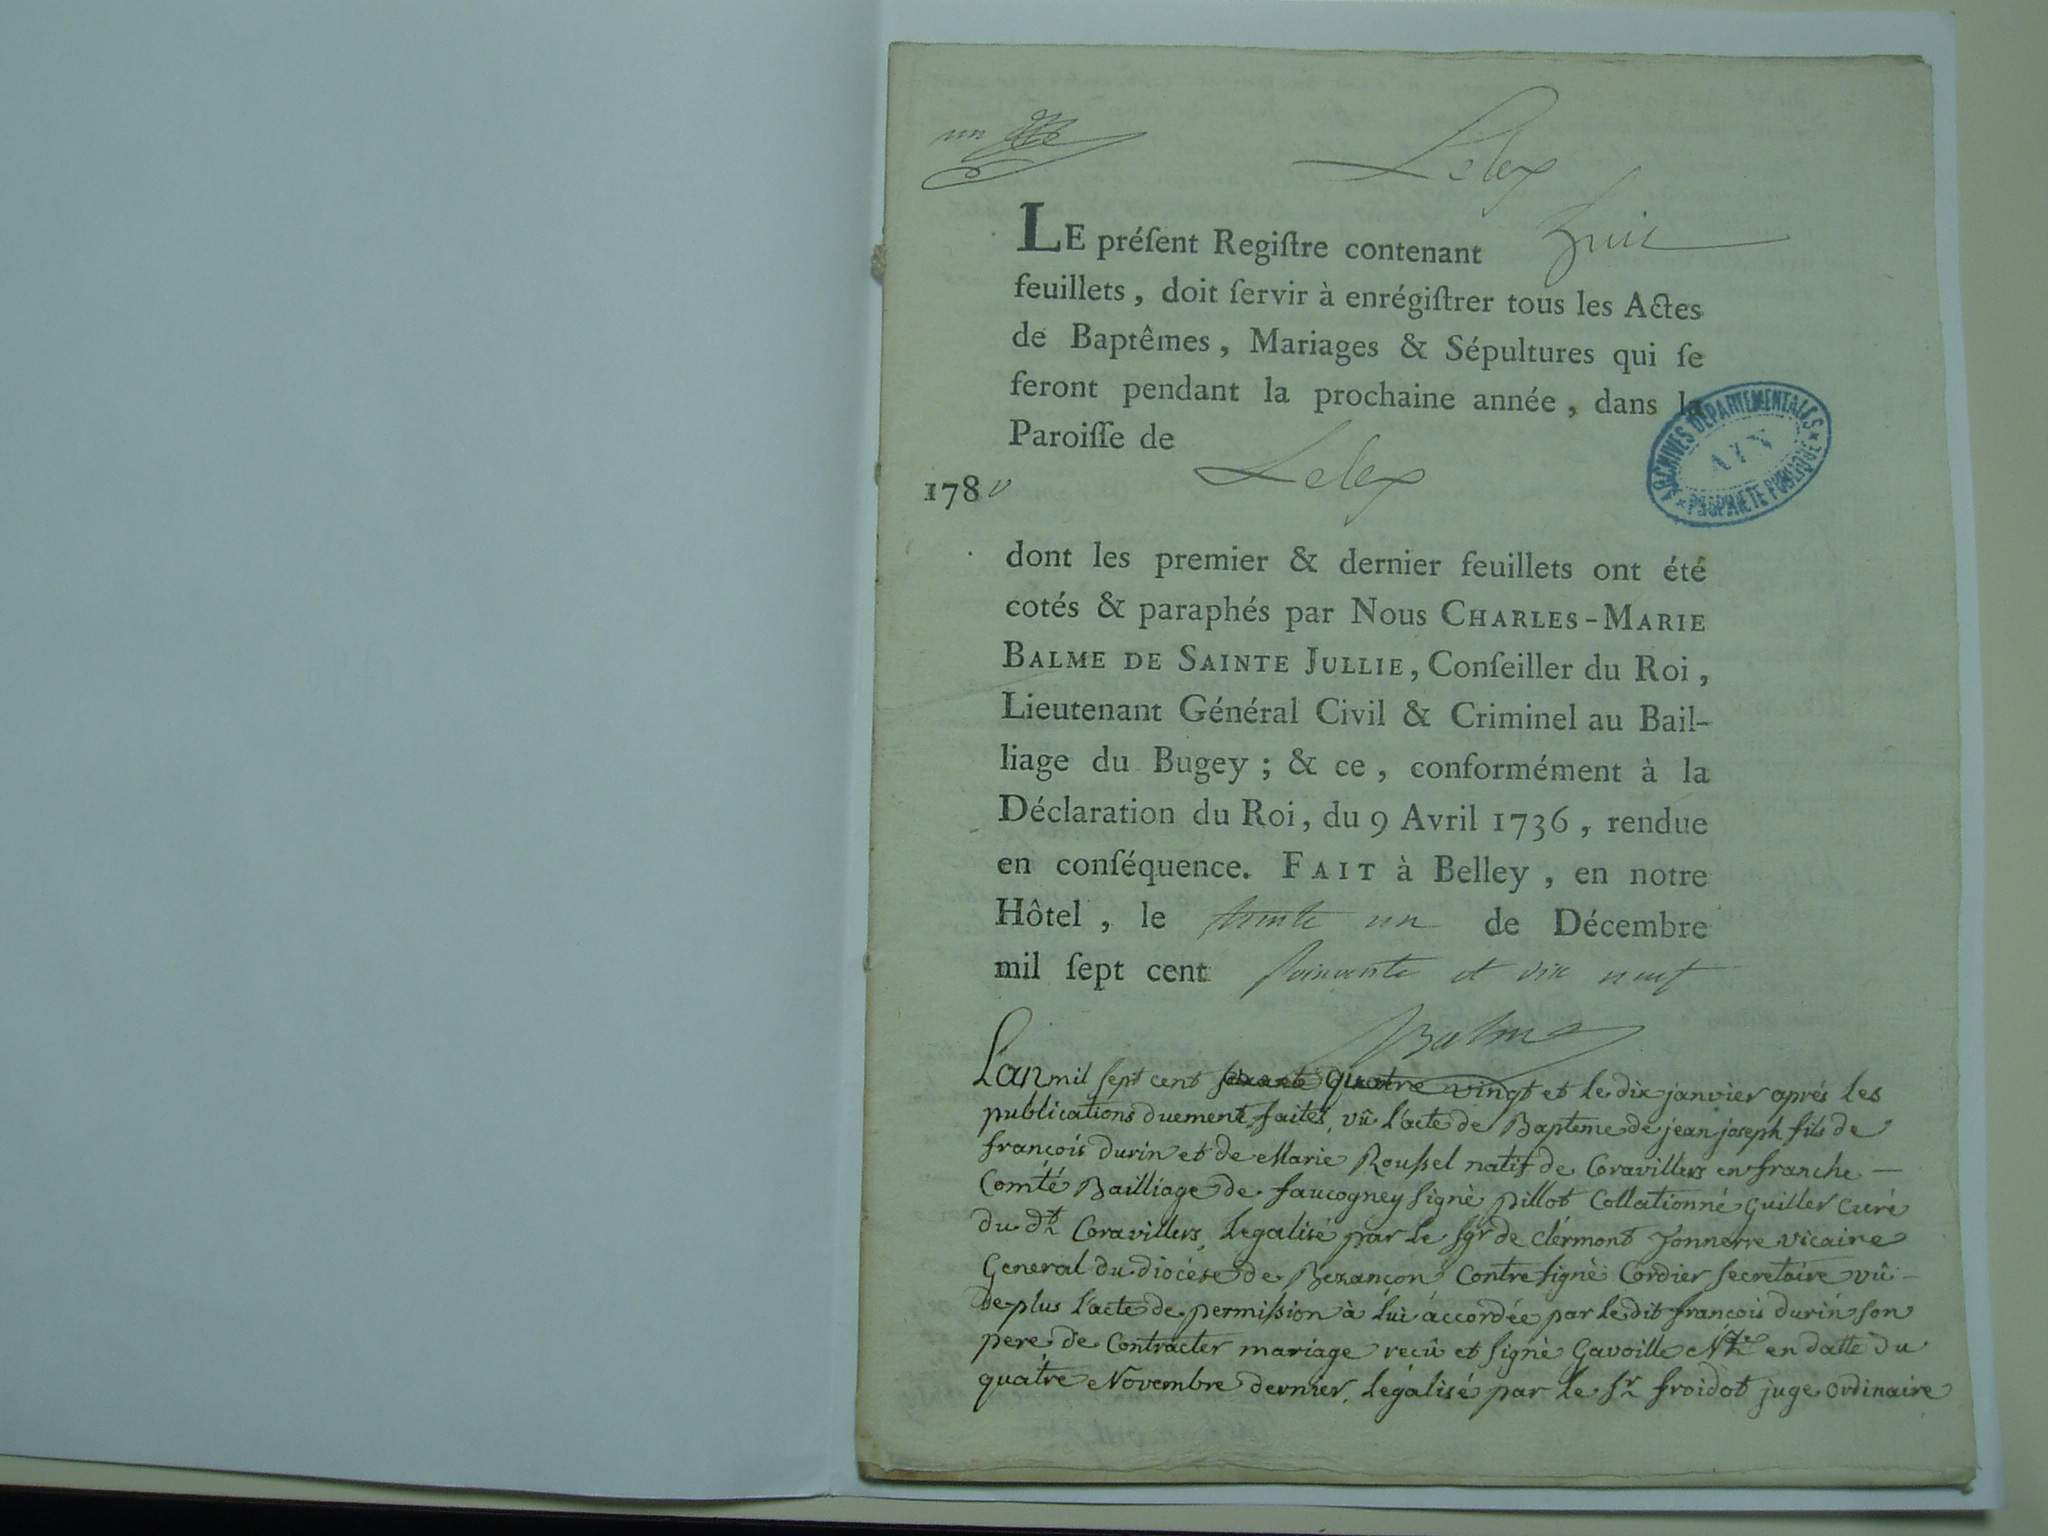 un
Lelex
LE préſent Regiſtre contenant huit
feuillets, doit ſervir à enrégiſtrer tous les Actes
de Baptêmes, Mariages & Sépultures qui ſe
feront pendant la prochaine année, dans la
Paroiſſe de Lelex
1780
ARCHIVES DÉPARTEMENTALES
AIN
PROPRIÉTÉ PUBLIQUE
dont les premier & dernier feuillets ont été
cotés & paraphés par Nous CHARLES-MARIE
BALME DE SAINTE JULLIE, Conſeiller du Roi,
Lieutenant Général Civil & Criminel au Bail-
liage du Bugey ; & ce, conformément à la
Déclaration du Roi, du 9 Avril 1736, rendue
en conſéquence. FAIT à Belley, en notre
Hôtel, le trente un de Décembre
mil ſept cent soixante et dix neuf
Balme
L'an mil sept cent quatre vingt et le dix janvier aprés les
publications duement faites, vû l'acte de Bapteme de jean joseph fils de
françois durin et de Marie Roussel natif de Coravillers en franche
Comté Bailliage de faucogney signé pillot Collationné Guiller Curé
du dt Coravillers, legalisé par le sgr de clérmont Tonnerre vicaire
General du diocése de Bezançon Contresigné Cordier secretaire vû
de plus l'acte de permission à lui accordée par le dit françois durin son
pere de Contracter mariage recû et signé Gavoille Nre en datte du
quatre Novembre dernier, légalisé par le sr froidot juge ordinaire